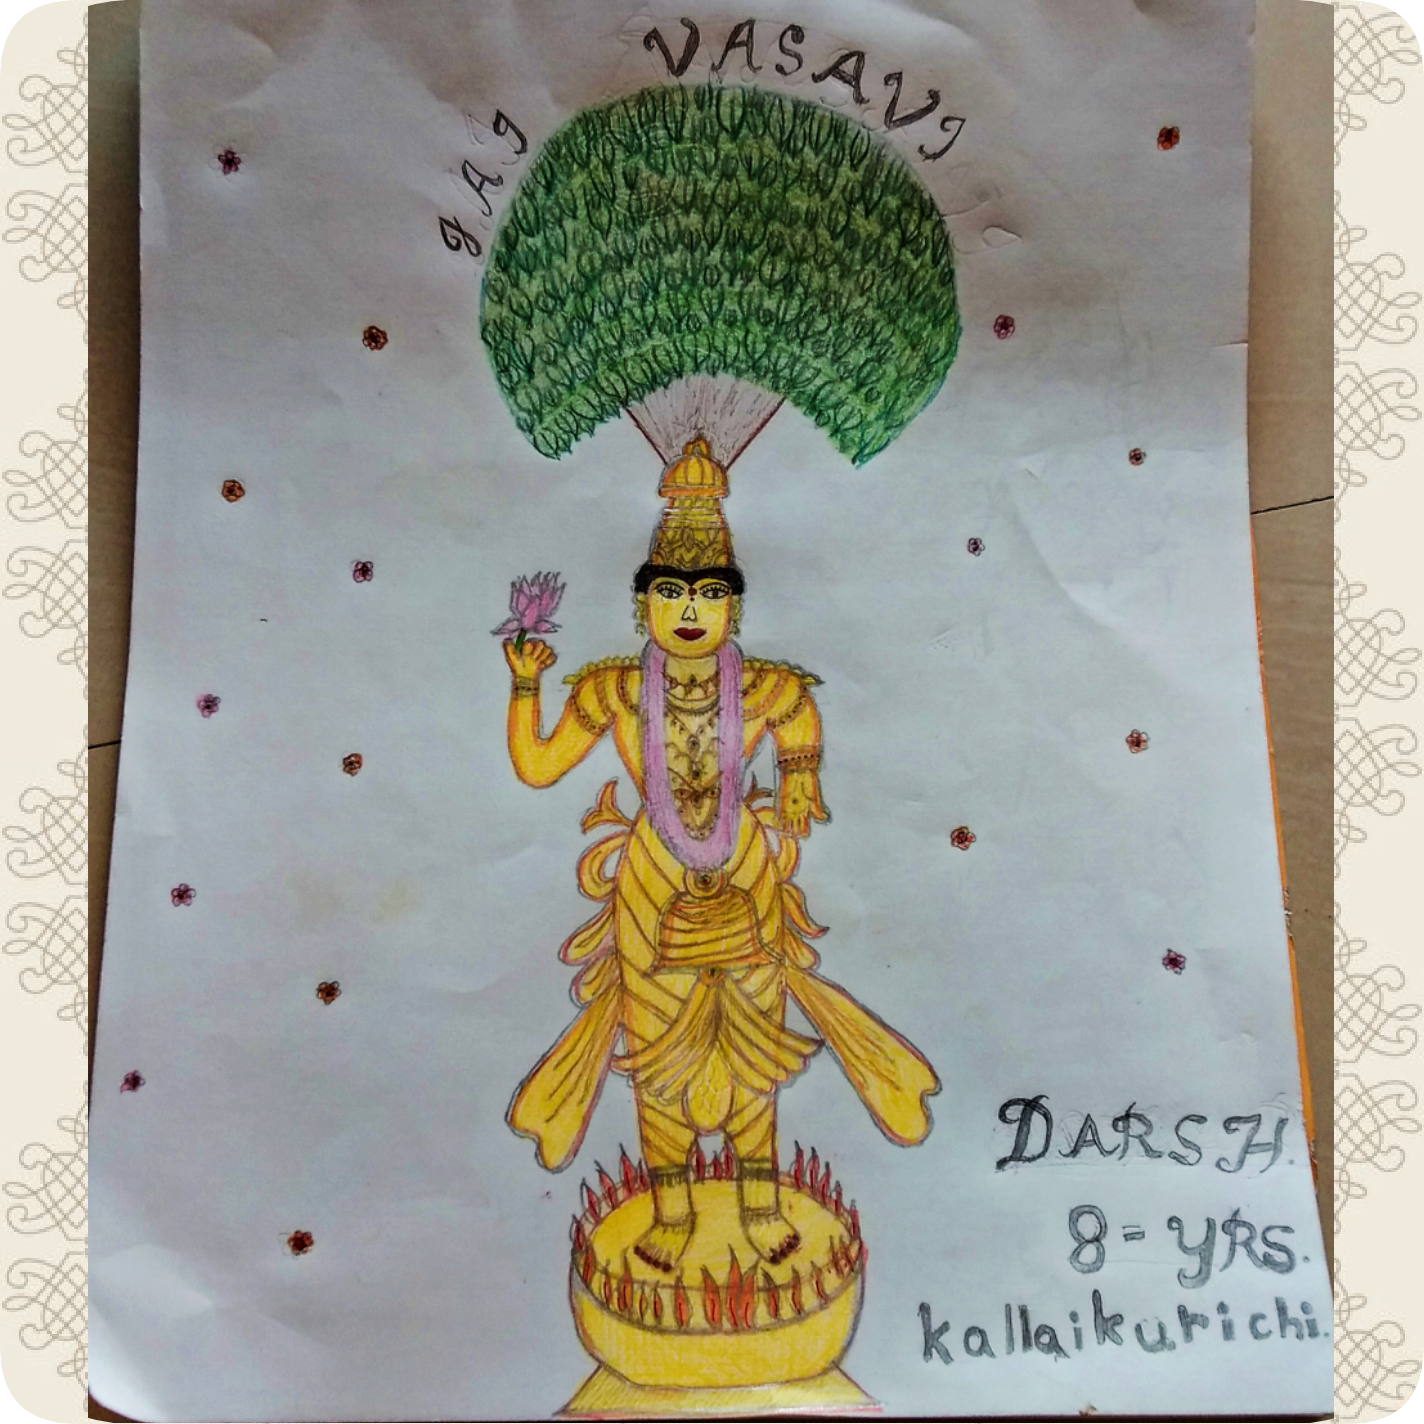 JAI VASAVI
DARSH.
8 = YRS.
kallaikurichi.